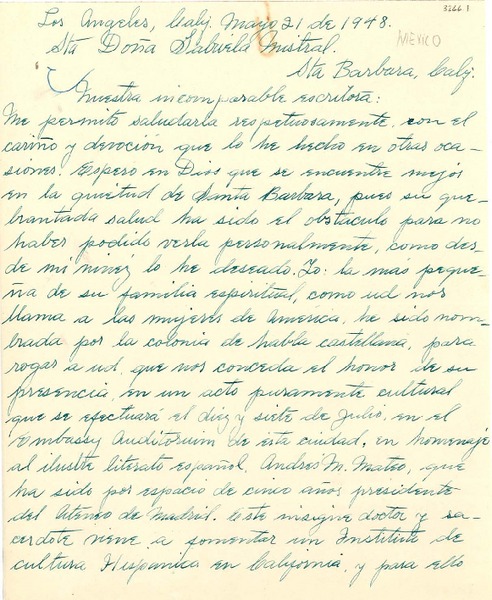 3266 1
Los Angeles, Calif. Mayo 21 de 1948.
MEXICO
Sta Doña Gabriela Mistral.
Sta Barbara, Calif.
Nuestra incomparable escritora:
Me permito saludarla respetuosamente, con el
cariño y devoción que lo he hecho en otras oca-
siones. Espero en Dios que se encuentre mejor
en la quietud de Santa Barbara, pues su que-
brantada salud ha sido el obstaculo para no
haber podido verla personalmente, como des-
de mi niñez lo he deseado. Yo: la más peque-
ña de su familia espiritual, como ud nos
llama a las mujeres de America, he sido nom-
brada por la colonia de habla castellana, para
rogar a ud, que nos conceda el honor de su
presencia, en un acto puramente cultural
que se efectuará el diez y siete de Julio, en el
Embassy Auditorium de esta ciudad, en homenaje
al ilustre literato español, Andrés M. Mateo, que
ha sido por espacio de cinco años presidente
del Ateneo de Madrid. Este insigne doctor y sa-
cerdote viene a fomentar un Instituto de
cultura Hispanica en California, y para ello